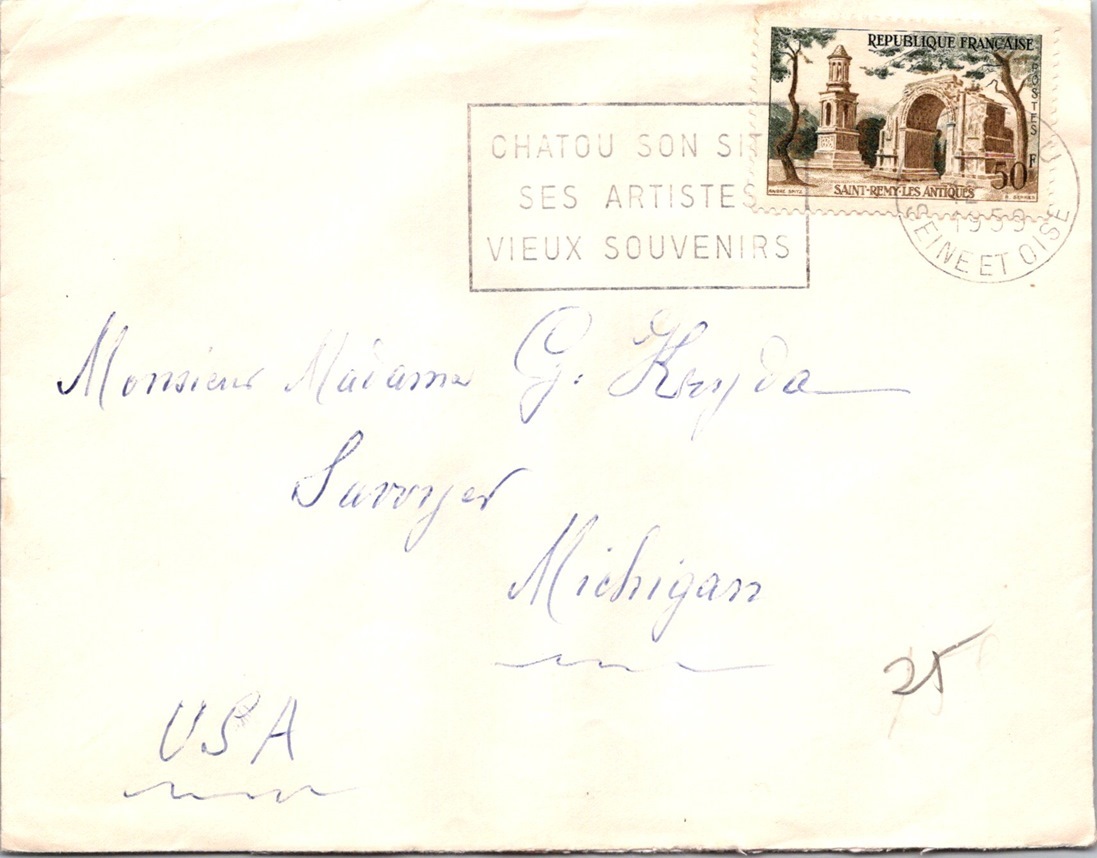 REPUBLIQUE FRANÇAISE
POSTES
50F
SAINT-REMY-LES ANTIQUES
ANDRÉ SPITZ
CHATOU SON SIT
SES ARTISTES
VIEUX SOUVENIRS
U
1959
SEINE ET OISE
Monsieur Madame G. Kryda
Sawyer
Michigan
USA
25